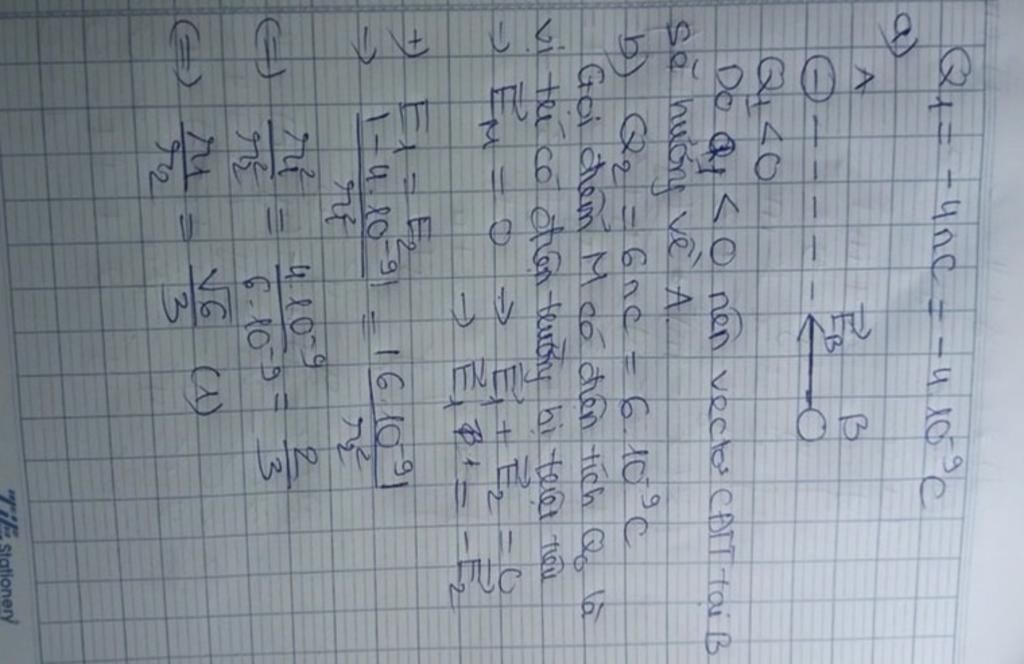 a) Q₁ = -4nC = -4.10⁻⁹C
A E⃗B B
Q₁ < 0
Do q₁ < 0 nên vectơ CĐĐT tại B
sẽ hướng về A.
b) Q₂ = 6nC = 6.10⁻⁹C
Gọi điểm M có điện tích Q₀ là
vị trí có điện trường bị triệt tiêu
→ E⃗M = 0 → E⃗₁ + E⃗₂ = 0
→ E⃗₁ = -E⃗₂
+) E₁ = E₂
→ |-4.10⁻⁹|/r₁² = |6.10⁻⁹|/r₂²
(=) r₁²/r₂² = 4.10⁻⁹/6.10⁻⁹ = 2/3
(=) r₁/r₂ = √6/3 (1)
Stationery